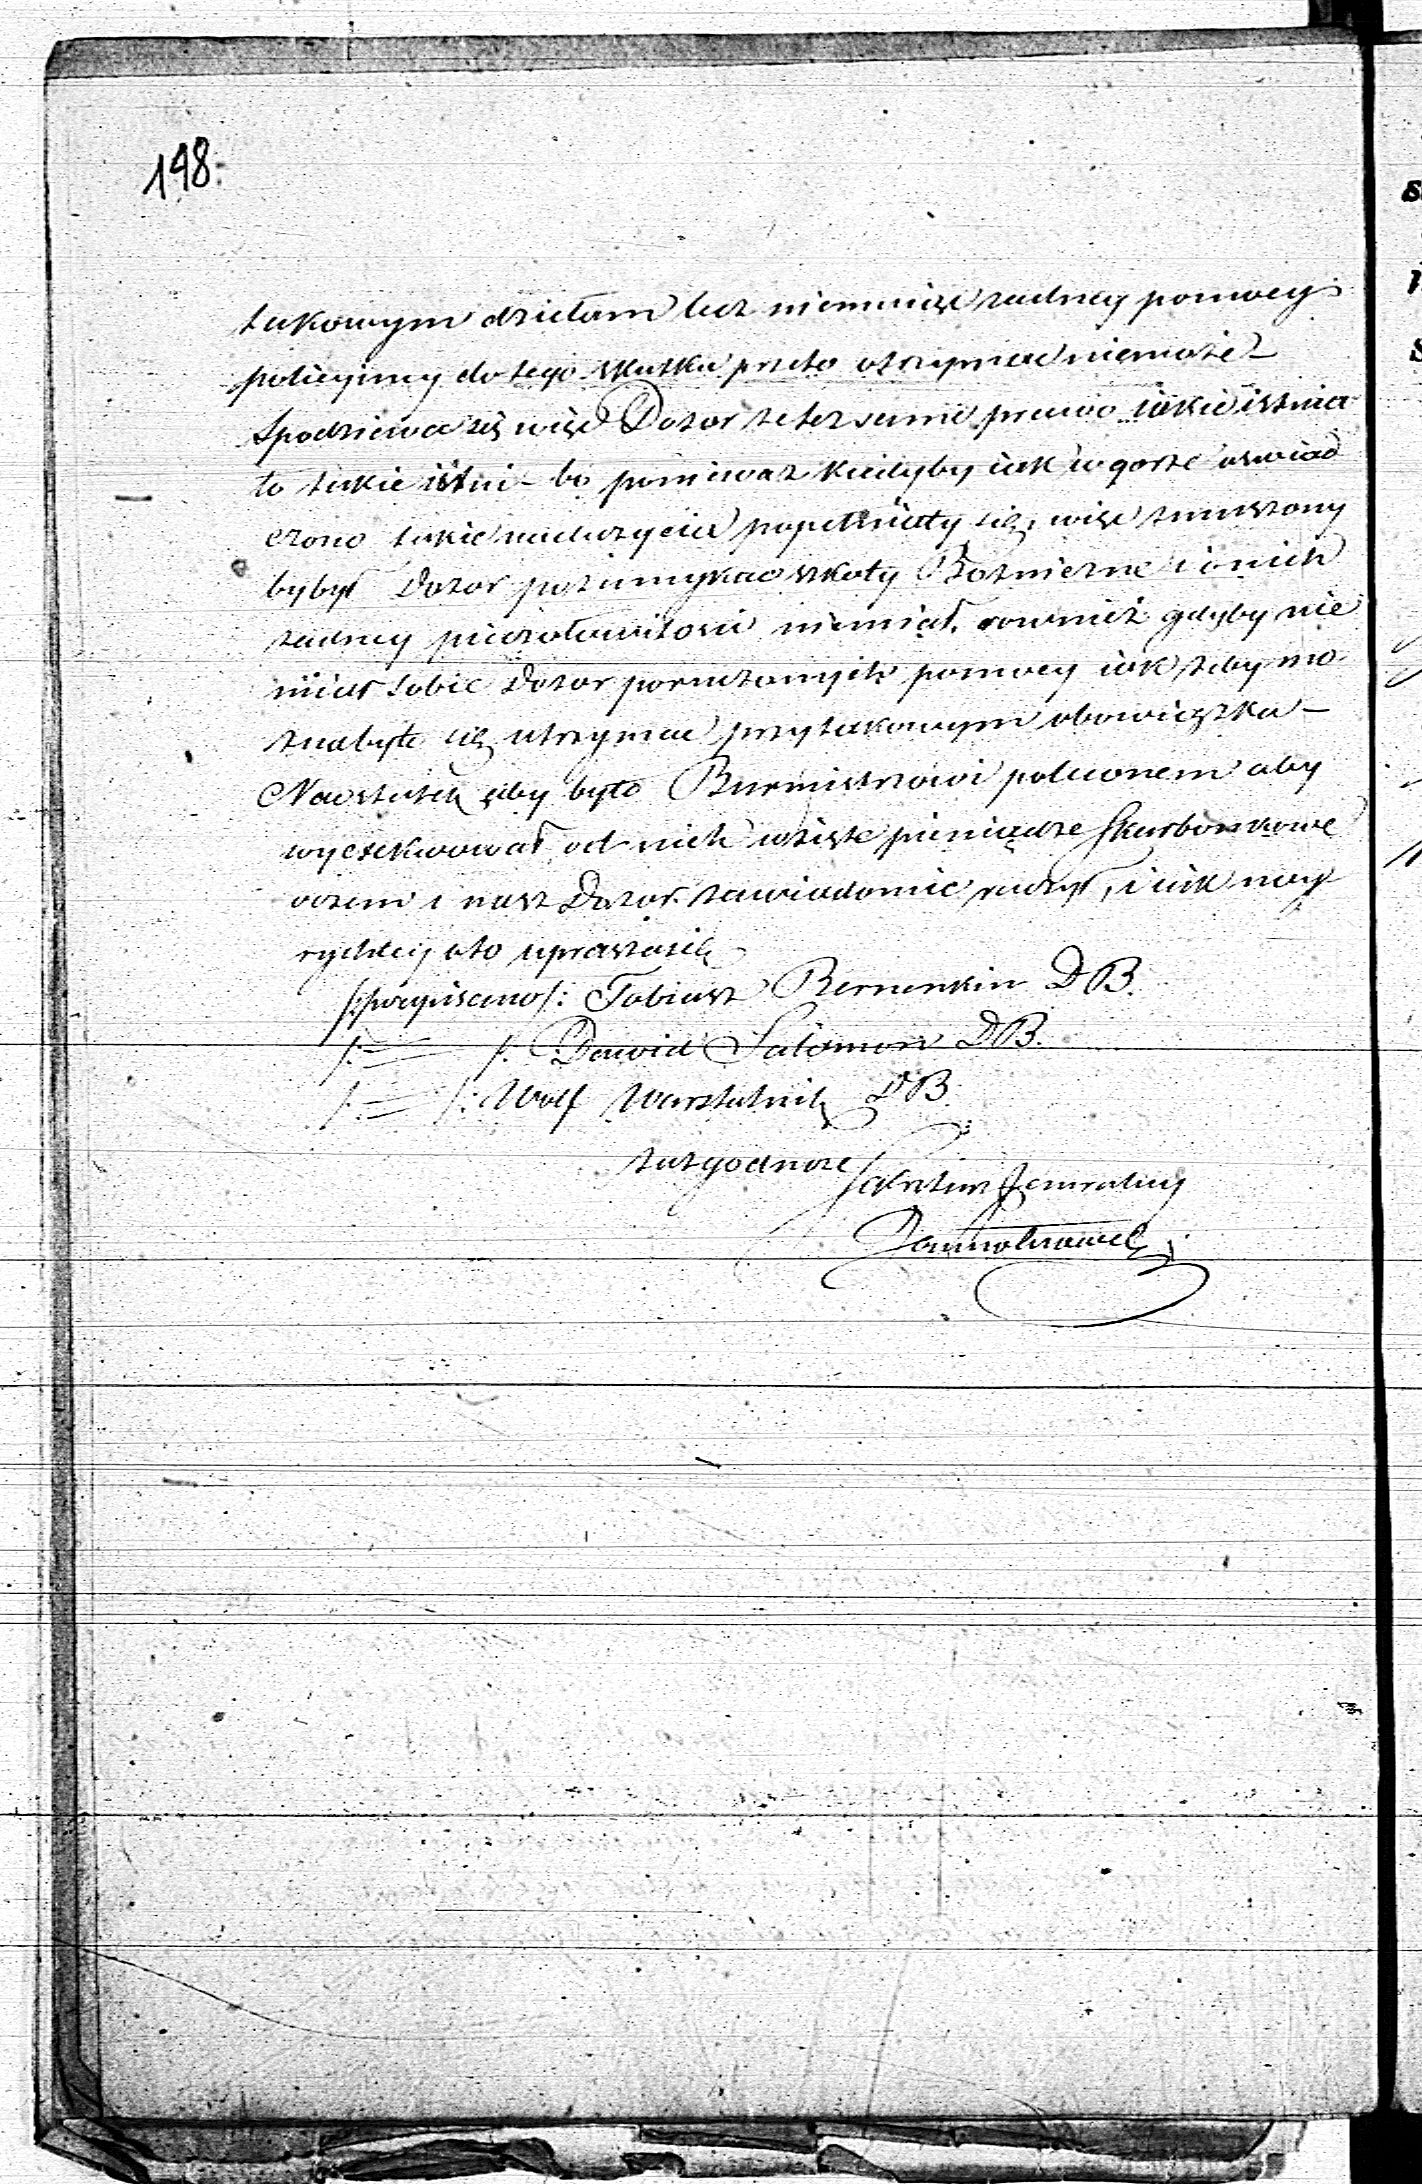 148.
takowym działam lecz niemając żadney pomocy
policyiney do tego skutku przeto otrzymać niemoże –
Spodziewa się więc Dozor że też same prawo iakie istnia
to takie istni – bo poniewaz kiedyby iak w gorze oswiad
czono takie naduzycia popełniały się, więc zmuszony
bybył Dozor pozamykać szkoły Bożnicze i onich
żadney pieczołowitosci niemiał, rownież gdyby nie
miał sobie Dozor pomocy iak żeby mo
żnabyło się utrzymać przytakowym obowiązku –
Nawstatek żeby było Burmistrzowi poleconem aby
wyexekwował od nich wzięte pieniądze skarbonkowe
oczem i nasz Dozor zawiadomić raczył, i iak nay
rychley oto uprasza się
/:podpisano/: Tobiasz DB.
/: = /: Dawid Salomon DB.
/: = /: Wolf DB
zazgodnosc
Sekretarz Jeneralny